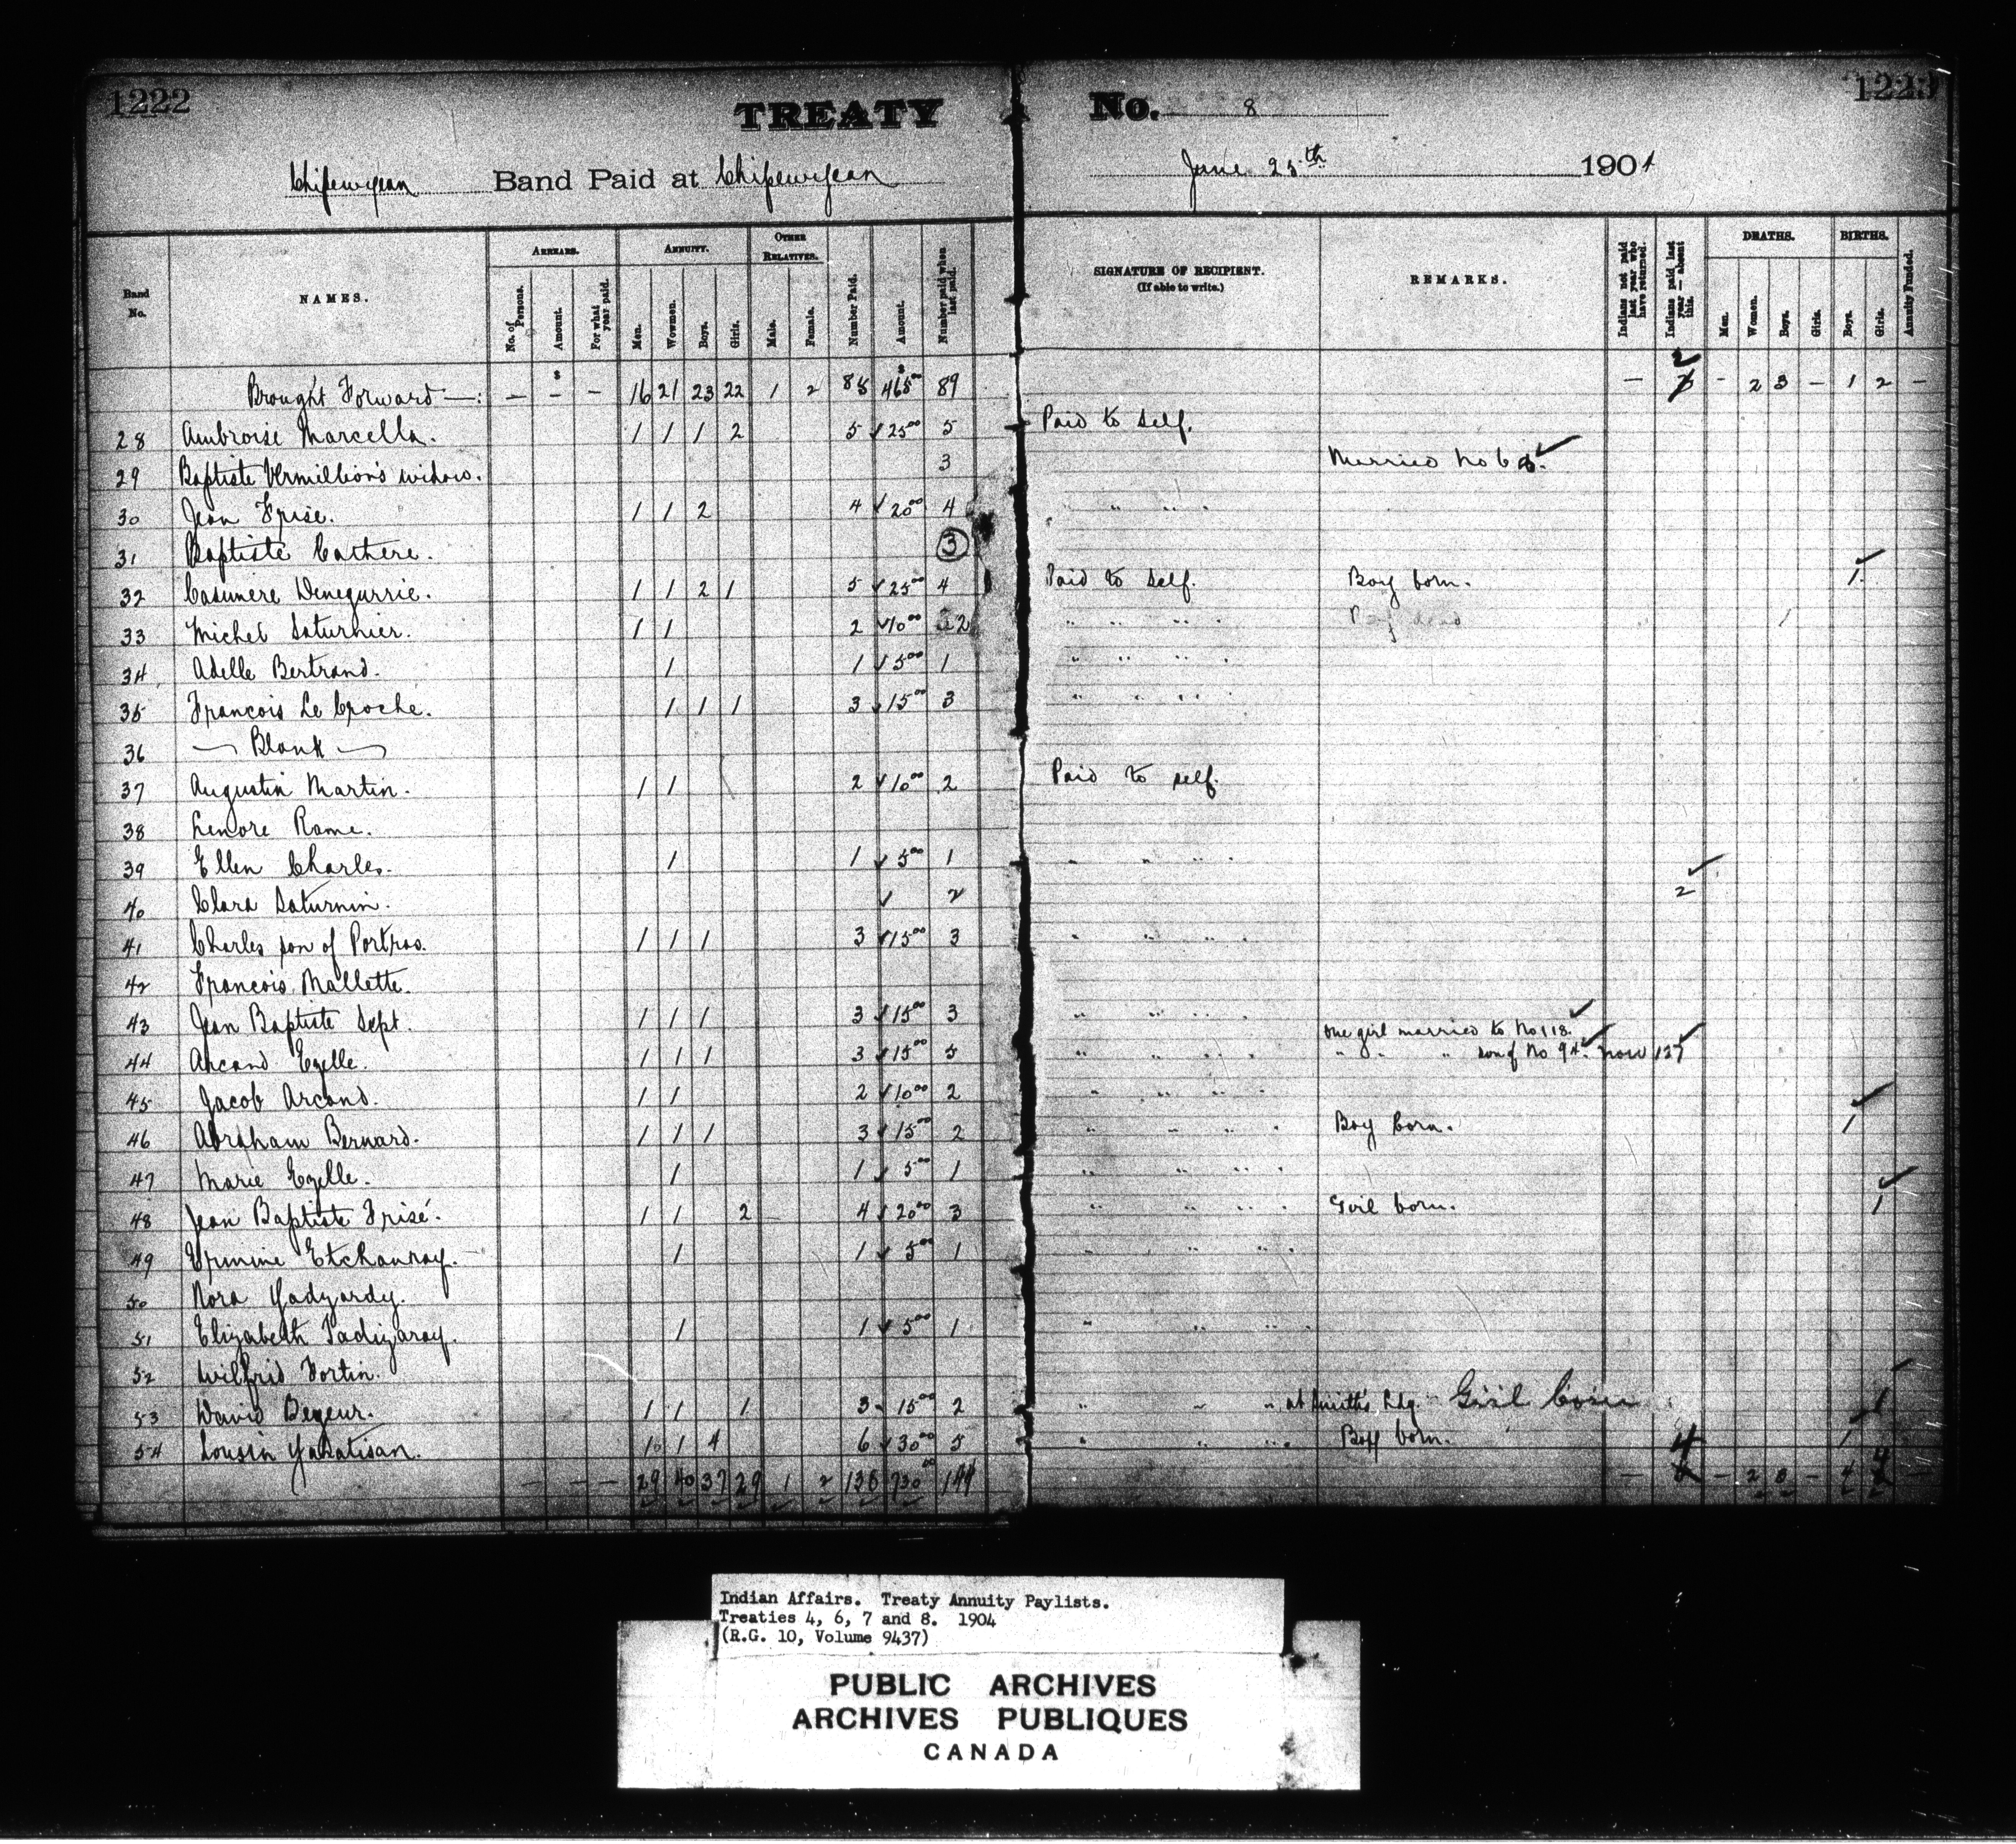 1222 TREATY No. 8 1223
Chipewyean Band Paid at Chipewyean June 25th 1904
Band No. NAMES. ARREARS. No. of Persons. Amount. For what year paid. ANNUITY. Men. Women. Boys. Girls. OTHER RELATIVES. Male. Female. Number Paid. Amount. Number paid when last paid. SIGNATURE OF RECIPIENT. (If able to write.) REMARKS. Indians not paid last year who have returned. Indians paid last year — absent this. DEATHS. Men. Women. Boys. Girls. BIRTHS. Boys. Girls. Annuity Funded.
Brought Forward —: — — — 16 21 23 22 1 2 85 465 00 89 — 2 - 2 3 — 1 2 —
28 Ambroise Marcella. 1 1 1 2 5 √ 25 00 5 Paid to self.
29 Baptiste Vermillion's widow. 3 Married No 68.
30 Jean Frise. 1 1 2 4 √ 20 00 4 " " " .
31 Baptiste Cathere. 3
32 Casimere Denegurrie. 1 1 2 1 5 √ 25 00 4 Paid to self. Boy born. 1
33 Michel Saturnier. 1 1 2 √ 10 00 2 " " " "
34 Adelle Bertrand. 1 1 √ 5 00 1 " " " "
35 Francois Le Croche. 1 1 1 3 √ 15 00 3 " " " "
36 — Blank —
37 Augustin Martin. 1 1 2 √ 10 00 2 Paid to self.
38 Lenore Rame.
39 Ellen Charles. 1 1 √ 5 00 1 " " " "
40 Clara Saturnin. √ 2 2
41 Charles son of Portras. 1 1 1 3 √ 15 00 3 " " " "
42 Francois Mallette.
43 Jean Baptiste Sept. 1 1 1 3 √ 15 00 3 " " " "
one girl married to No 118.
44 Arcand Ezelle. 1 1 1 3 √ 15 00 5 " " " " " " " son of No 94. now 127
45 Jacob Arcand. 1 1 2 √ 10 00 2 " " " "
46 Abraham Bernard. 1 1 1 3 √ 15 00 2 " " " " Boy born. 1
47 Marie Ezelle. 1 1 √ 5 00 1 " " " "
48 Jean Baptiste Frisé. 1 1 2 4 √ 20 00 3 " " " " Girl born. 1
49 Etchanray. 1 1 √ 5 00 1 " " " "
50 Nora Yadyardy.
51 Elizabeth Tadizaray. 1 1 √ 5 00 1 " " " "
52 Wilfrid Fortin.
53 David Bezeur. 1 1 1 3 √ 15 00 2 " " " at Smith's Ldg. Girl born 1
54 Lousin Yakatisan. 1 1 4 6 √ 30 00 5 " " " " Boy born. 1
— — — 29 40 37 29 1 2 138 730 00 144 — 4 — 2 3 — 4 4 —
Indian Affairs. Treaty Annuity Paylists.
Treaties 4, 6, 7 and 8. 1904
(R.G. 10, Volume 9437)
PUBLIC ARCHIVES
ARCHIVES PUBLIQUES
CANADA